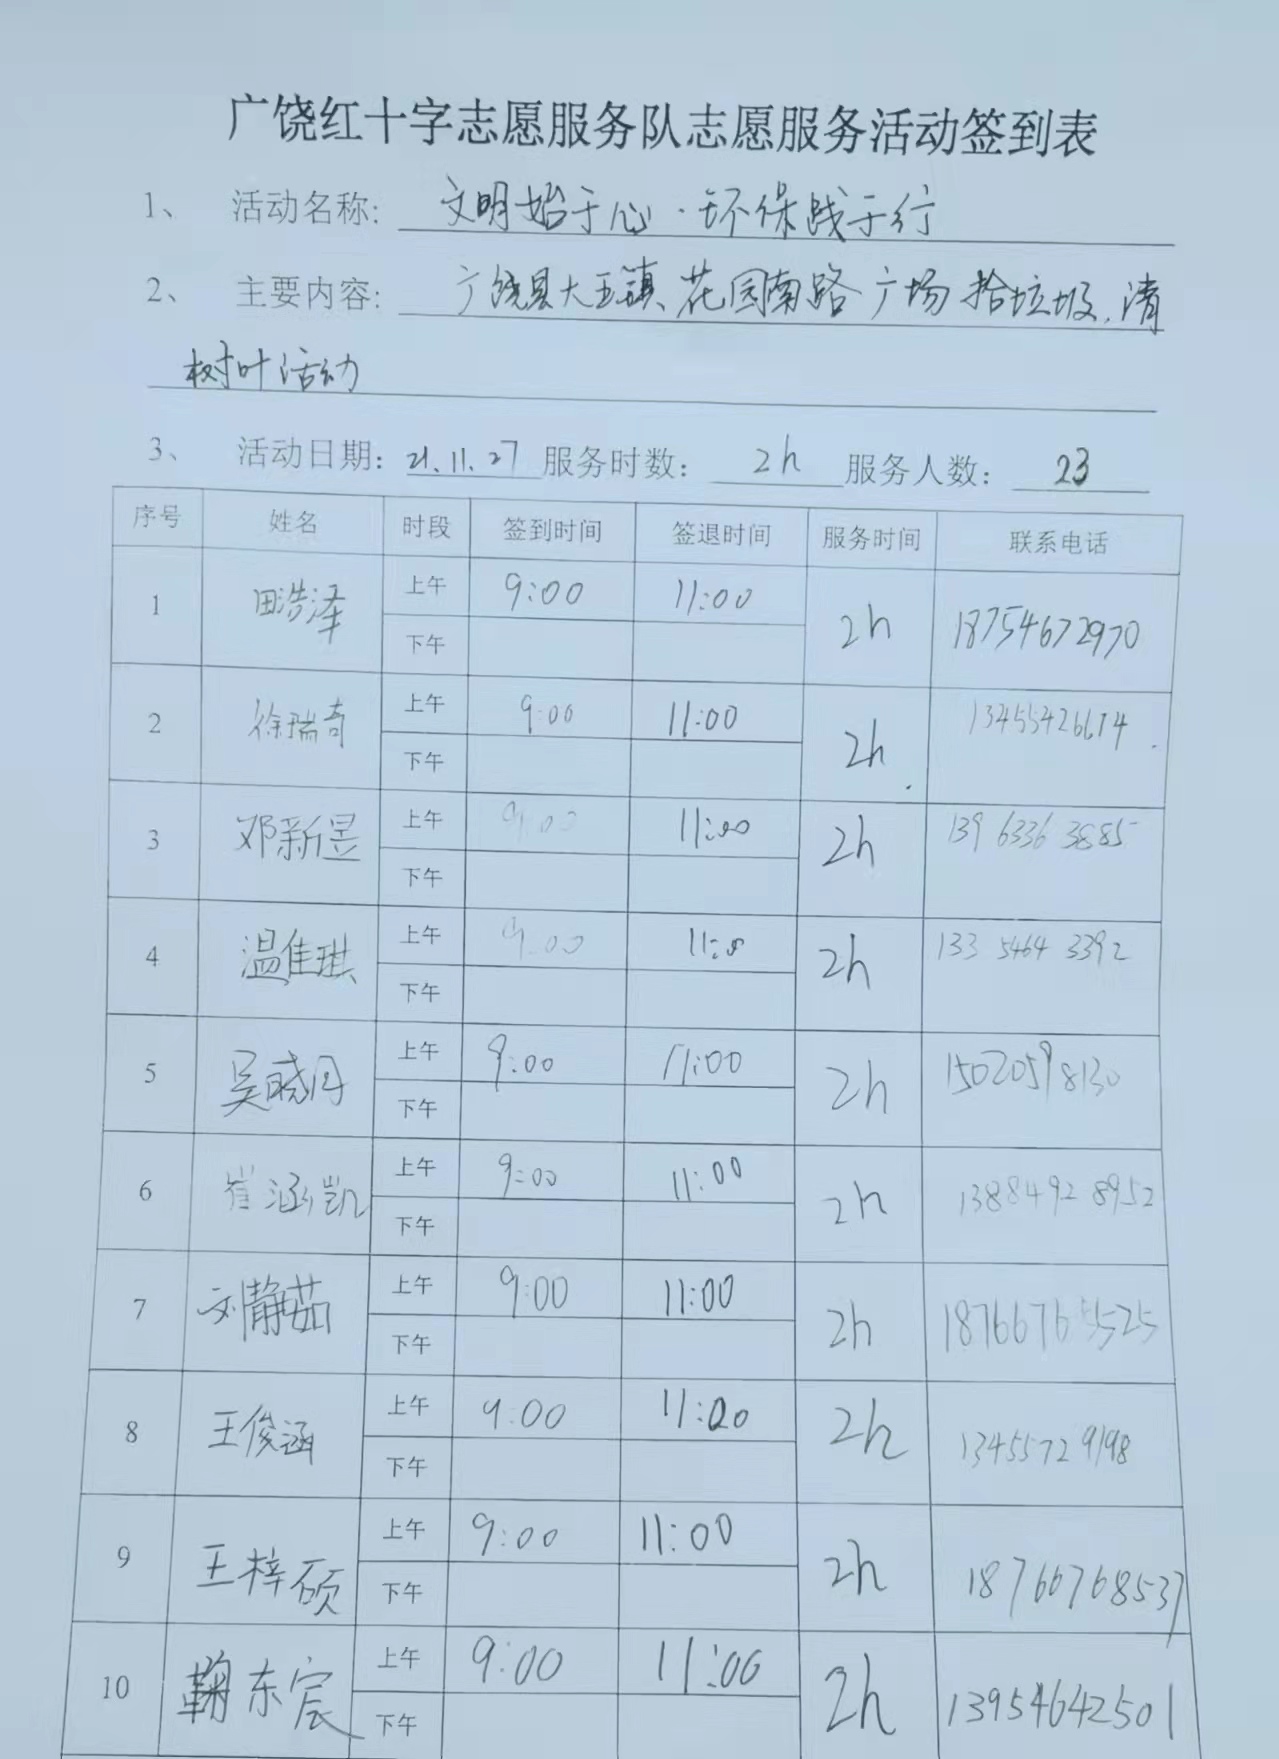 广饶红十字志愿服务队志愿服务活动签到表
1、 活动名称: 文明始于心·环保践于行
2、 主要内容: 广饶县大王镇、花园南路广场拾垃圾、清
树叶活动
3、 活动日期: 21.11.27 服务时数: 2h 服务人数: 23
序号 姓名 时段 签到时间 签退时间 服务时间 联系电话
1 田浩泽 上午 9:00 11:00 2h 18754672970
下午
2 徐瑞奇 上午 9:00 11:00 2h 13455426614
下午
3 邓新昱 上午 9:00 11:00 2h 139 6336 3885
下午
4 温佳琪 上午 9:00 11:0 2h 133 5464 3392
下午
5 吴晓丹 上午 9:00 11:00 2h 15020598130
下午
6 崔涵凯 上午 9:00 11:00 2h 1388492 8952
下午
7 刘静茹 上午 9:00 11:00 2h 18766765525
下午
8 王俊涵 上午 9:00 11:00 2h 1345572 9198
下午
9 王梓硕 上午 9:00 11:00 2h 18766768537
下午
10 鞠东宸 上午 9:00 11:00 2h 13954642501
下午